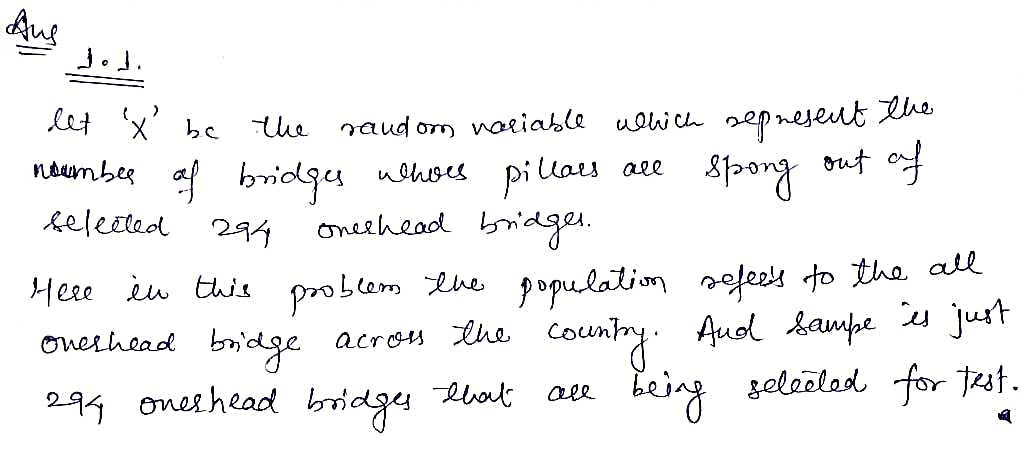 Ans
1.1.
let 'X' be the random variable which represent the
number of bridges whoes pillars are spong out of
selected 294 overhead bridges.
Here in this problem the population refers to the all
overhead bridge across the country. And sampe is just
294 overhead bridges that are being selected for test.